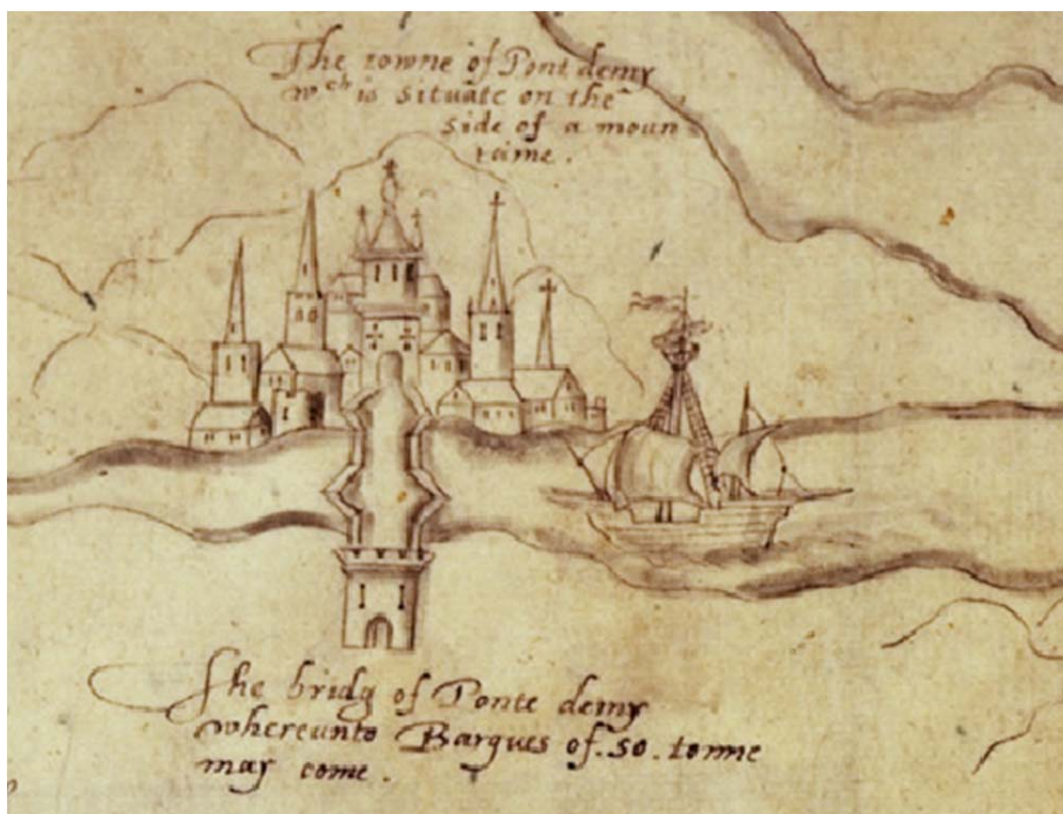 The towne of Pont demy
wch is situate on the
side of a moun
taine.
The bridg of Ponte demy
whereunto Barques of .50. tonne
may come.